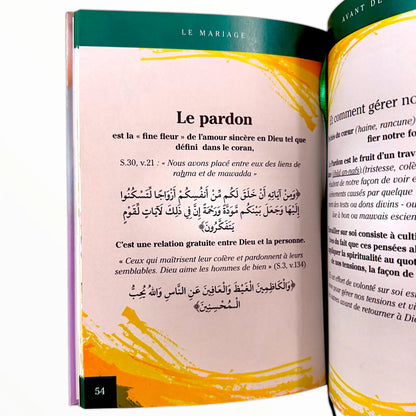 LE MARIAGE
Le pardon
est la « fine fleur » de l'amour sincère en Dieu tel que
défini dans le coran,
S.30, v.21 : « Nous avons placé entre eux des liens de
raḥma et de mawadda »
﴿وَمِنْ آيَاتِهِ أَنْ خَلَقَ لَكُم مِّنْ أَنفُسِكُمْ أَزْوَاجًا لِّتَسْكُنُوا
إِلَيْهَا وَجَعَلَ بَيْنَكُم مَّوَدَّةً وَرَحْمَةً إِنَّ فِي ذَٰلِكَ لَآيَاتٍ لِّقَوْمٍ
يَتَفَكَّرُونَ﴾
C'est une relation gratuite entre Dieu et la personne.
« Ceux qui maîtrisent leur colère et pardonnent à leurs
semblables. Dieu aime les hommes de bien » (S.3, v.134)
﴿وَالْكَاظِمِينَ الْغَيْظَ وَالْعَافِينَ عَنِ النَّاسِ وَاللَّهُ يُحِبُّ
الْمُحْسِنِينَ﴾
54
AVANT DE
Et comment gérer nos
du cœur (haine, rancune)
fier notre fo
Pardon est le fruit d'un trav
(jihâd an-nafs) (tristesse, colè
de notre façon de voir e
causés par quelque
tests ou dons divins - ou
bon ou mauvais escien
sur soi consiste à culti
du fait que ces pensées al
la spiritualité au quot
nos tensions, la façon de
effort de volonté sur soi es
pour gérer nos tensions et vi
avant de retourner à Die